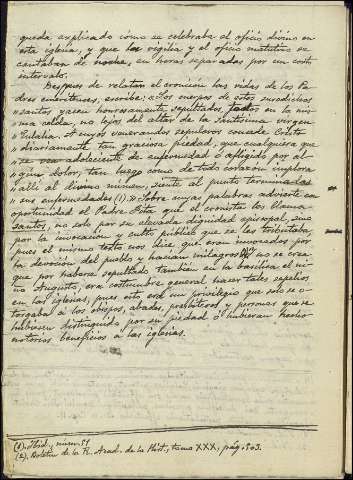 queda explicado cómo se celebraba el oficio divino en
esta iglesia, y que la vigilia y el oficio matutino se
cantaban de noche, en horas separadas por un corto
intervalo.
Después de relatar el cronicón las vidas de los Pa-
dres emeritenses, escribe: «Los cuerpos de estos suradichos
»santos yacen honrosamente sepultados, todos en la mis-
»ma celda, no lejos del altar de la Santísima virgen
»Eulalia. A cuyos venerandos sepulcros concede Cristo
»diariamente tan graciosa piedad, que cualquiera que
»se vea adolescente de enfermedad ó afligido por al-
»gún dolor, tan luego como de todo corazón implora
»allí al divino númen, siente al punto terminadas
»sus enfermedades (1).» Sobre cuyas palabras advierte con
oportunidad el Padre Fita que el cronista los llama
santos, no solo por su elevada dignidad episcopal, sino
por la invocación y culto público que se les tributaba,
pues el mismo texto nos dice que eran invocados por
la devoción del pueblo y hacían milagros (2). no se crea
que por haberse sepultado también en la basílica el ni-
ño Augusto, era costumbre general hacer tales sepelios
en las iglesias, pues esto era un privilegio que solo se o-
torgaba á los obispos, abades, presbíteros y personas que se
hubiesen distinguido por su piedad ó hubieran hecho
notorios beneficios á las iglesias.
(1). Ibid., núm. 51
(2). Boletín de la R. Acad. de la Hist., tomo XXX, pág. 503.